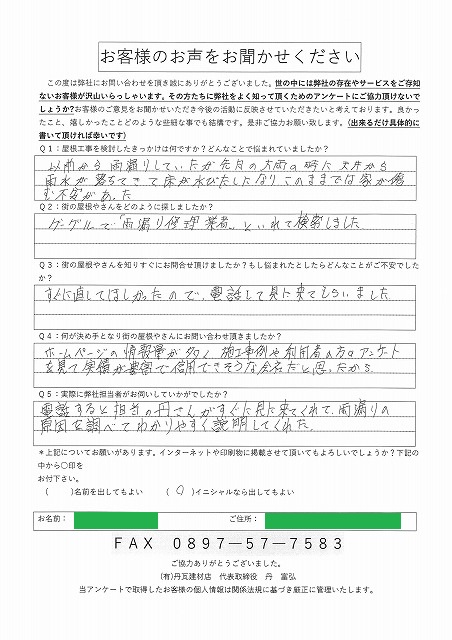 お客様のお声をお聞かせください
この度は弊社にお問い合わせを頂き誠にありがとうございました。世の中には弊社の存在やサービスをご存知
ないお客様が沢山いらっしゃいます。その方たちに弊社をよく知って頂くためのアンケートにご協力頂けないで
しょうか?お客様のご意見をお聞かせいただき今後の活動に反映させていただきたいと考えております。良かっ
たこと、嬉しかったことどのような些細な事でも結構です。是非ご協力お願い致します。(出来るだけ具体的に
書いて頂ければ幸いです)
Q1:屋根工事を検討したきっかけは何ですか?どんなことで悩まれていましたか?
以前から雨漏りしていたが先日の大雨の時に天井から
雨水が落ちてきて床が水びたしになりこのままでは家が傷
む不安があった
Q2:街の屋根やさんをどのように探しましたか?
グーグルで「雨漏り修理 業者」といれて検索しました
Q3:街の屋根やさんを知りすぐにお問合せ頂けましたか?もし悩まれたとしたらどんなことがご不安でした
か?
すぐに直してほしかったので、電話して見に来てもらいました
Q4:何が決め手となり街の屋根やさんにお問い合わせ頂きましたか?
ホームページの情報量が多く、施工事例や利用者の方のアンケート
を見て実績が豊富で信用できそうな会社だと思ったから
Q5:実際に弊社担当者がお伺いしていかがでしたか?
電話すると担当の丹さんがすぐに見に来てくれて、雨漏りの
原因を調べてわかりやすく説明してくれた。
*上記についてお願いがあります。インターネットや印刷物に掲載させて頂いてもよろしいでしょうか?下記の
中から○印を
お付下さい。
( )名前を出してもよい ( ○ )イニシャルなら出してもよい
お名前: ご住所:
FAX 0897-57-7583
ご協力ありがとうございました。
(有)丹瓦建材店 代表取締役 丹 富弘
当アンケートで取得したお客様の個人情報は関係法規に基づき厳正に管理いたします。